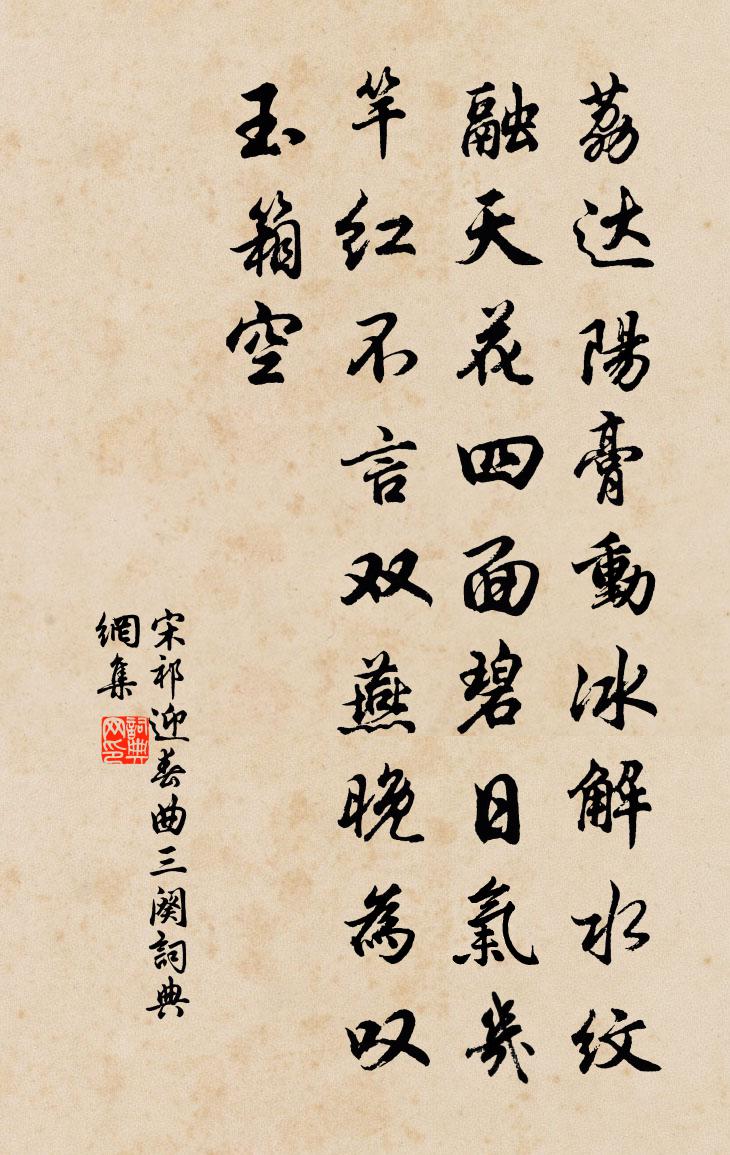 荔达陽膏動冰解水纹
融天花四面碧日氣幾
竿红不言双燕晚為叹
玉箱空
宋祁迎春曲三阕詞典
網集
詞典网印